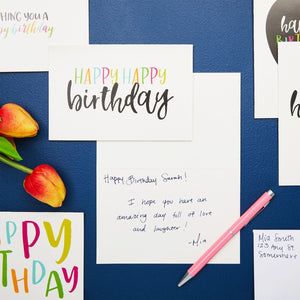 HING YOU A
py birthday
HAPPY HAPPY
birthday
ha
BIRTH
ha
Happy Birthday Sarah!
I hope you have an
amazing day full of love
and laughter!
-Mia
PPY
THDAY
Mia Smith
123 Any St
Somewhere